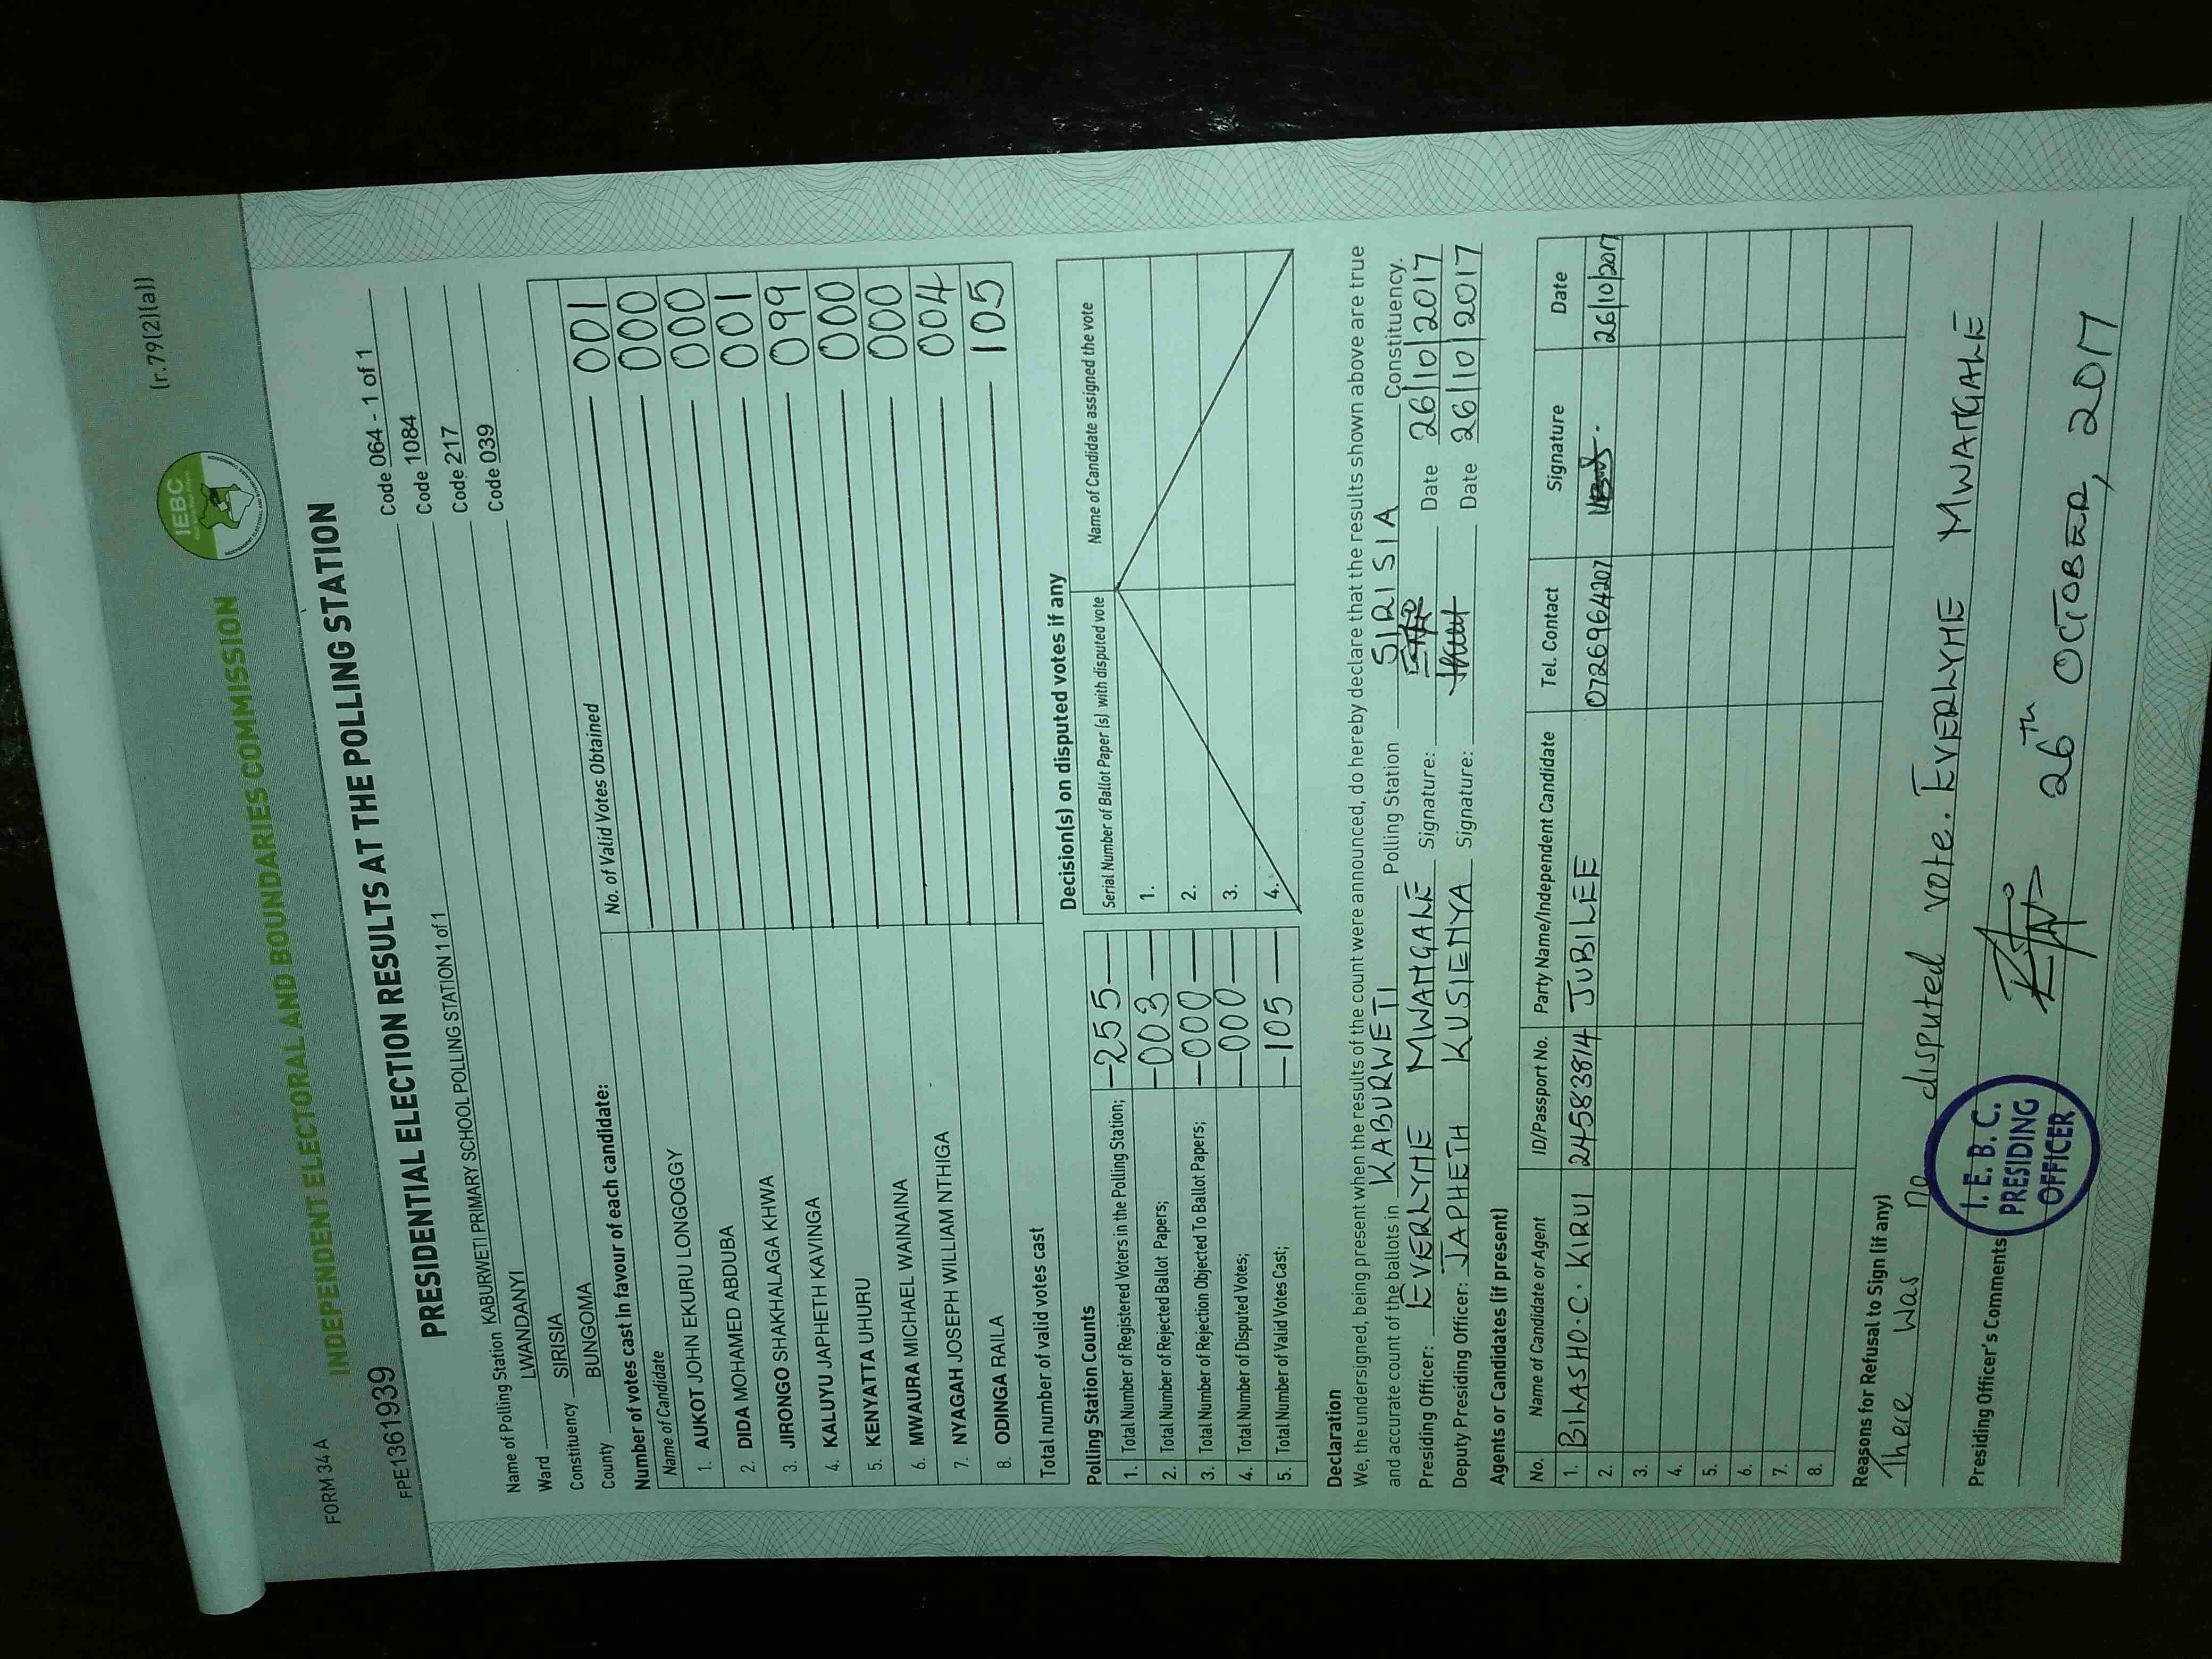 FORM 34 A
(r.79(2)(a))
IEBC
INDEPENDENT ELECTORAL AND BOUNDARIES COMMISSION
FPE1361939
PRESIDENTIAL ELECTION RESULTS AT THE POLLING STATION
Name of Polling Station KABURWETI PRIMARY SCHOOL POLLING STATION 1 of 1 Code 064 - 1 of 1
Ward LWANDANYI Code 1084
Constituency SIRISIA Code 217
County BUNGOMA Code 039
Number of votes cast in favour of each candidate:
Name of Candidate No. of Valid Votes Obtained
1. AUKOT JOHN EKURU LONGOGGY 001
2. DIDA MOHAMED ABDUBA 000
3. JIRONGO SHAKHALAGA KHWA 000
4. KALUYU JAPHETH KAVINGA 001
5. KENYATTA UHURU 099
6. MWAURA MICHAEL WAINAINA 000
7. NYAGAH JOSEPH WILLIAM NTHIGA 000
8. ODINGA RAILA 004
Total number of valid votes cast 105
Polling Station Counts
1. Total Number of Registered Voters in the Polling Station; -255-
2. Total Number of Rejected Ballot Papers; -003-
3. Total Number of Rejection Objected To Ballot Papers; -000-
4. Total Number of Disputed Votes; -000-
5. Total Number of Valid Votes Cast; -105-
Decision(s) on disputed votes if any
Serial Number of Ballot Paper (s) with disputed vote Name of Candidate assigned the vote
1.
2.
3.
4.
Declaration
We, the undersigned, being present when the results of the count were announced, do hereby declare that the results shown above are true
and accurate count of the ballots in KABURWETI Polling Station SIRISIA Constituency.
Presiding Officer: EVERLYNE MWANGALE Signature: Date 26/10/2017
Deputy Presiding Officer: JAPHETH KUSIENYA Signature: Date 26/10/2017
Agents or Candidates (if present)
No. Name of Candidate or Agent ID/Passport No. Party Name/Independent Candidate Tel. Contact Signature Date
1. BILASHO.C. KIRUI 24583814 JUBILEE 0726964207 26/10/2017
2.
3.
4.
5.
6.
7.
8.
Reasons for Refusal to Sign (if any)
There was no disputed vote. EVERLYNE MWANGALE
Presiding Officer's Comments
I. E. B. C.
PRESIDING
OFFICER
26TH OCTOBER, 2017